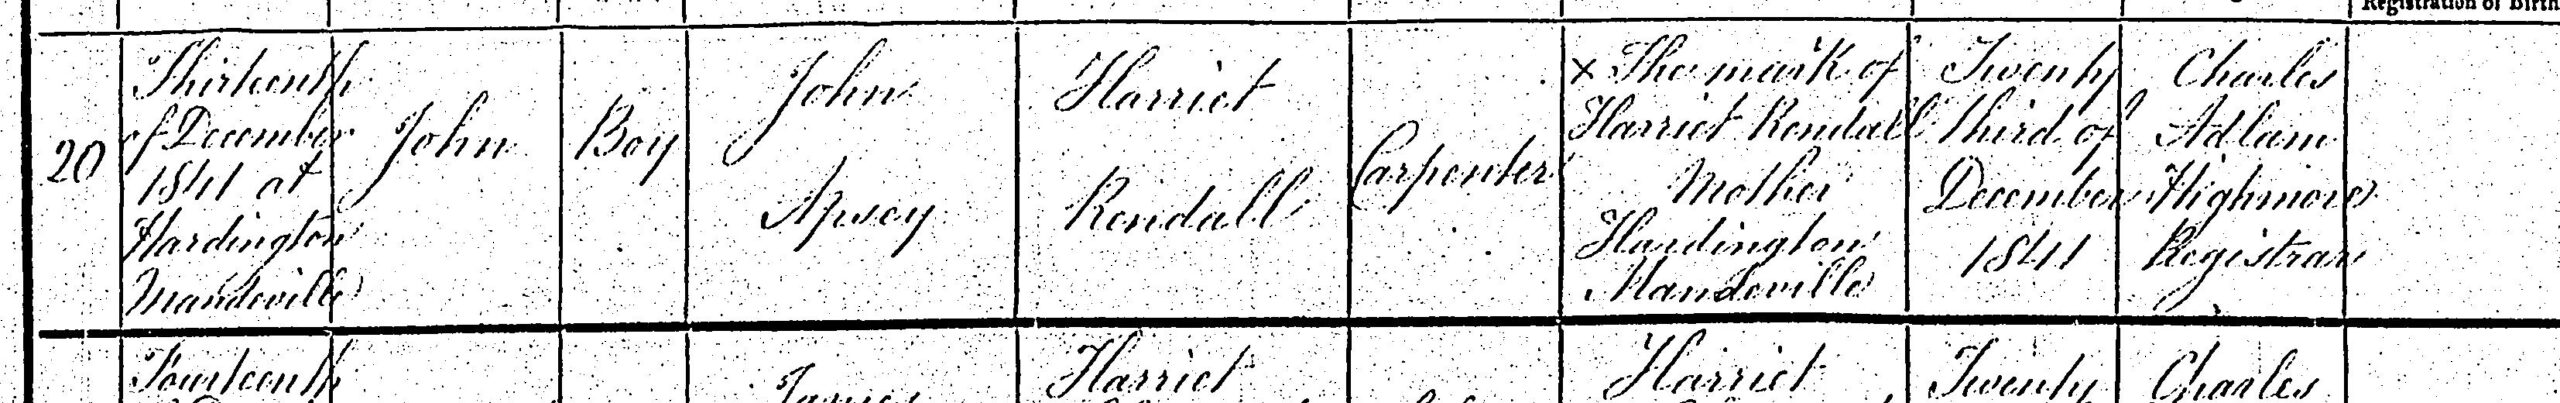 Registration of Birth
20
Thirteenth
of December
1841 at
Hardington
Mandeville
John
Boy
John
Apsey
Harriet
Rendall
Carpenter
x The mark of
Harriet Rendall
Mother
Hardington
Mandeville
Twenty
third of
December
1841
Charles
Adlam
Highmore
Registrar
Fourteenth
James
Harriet
Harriet
Twenty
Charles